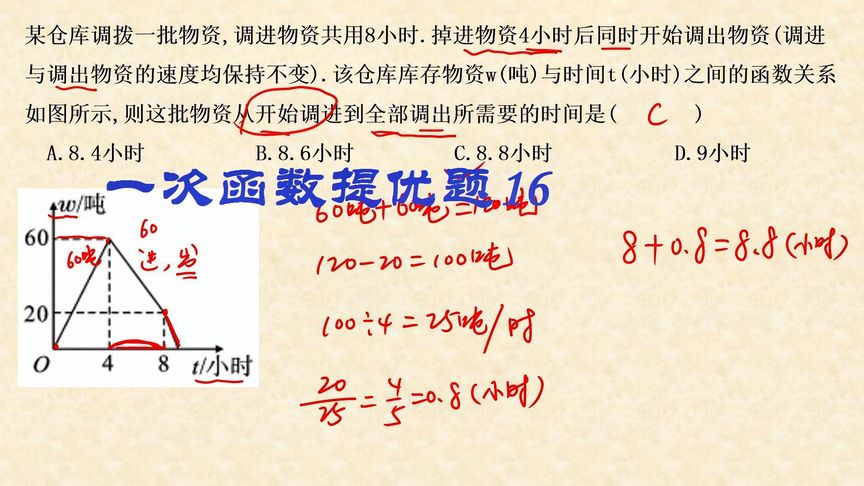 某仓库调拨一批物资,调进物资共用8小时.掉进物资4小时后同时开始调出物资(调进
与调出物资的速度均保持不变).该仓库库存物资w(吨)与时间t(小时)之间的函数关系
如图所示,则这批物资从开始调进到全部调出所需要的时间是( C )
A.8.4小时 B.8.6小时 C.8.8小时 D.9小时
一次函数提优题16
w/吨
60
60
60吨
进,出
20
O 4 8 t/小时
60吨+60吨=120吨
120-20=100吨
100÷4=25吨/时
20/25=4/5=0.8(小时)
8+0.8=8.8(小时)